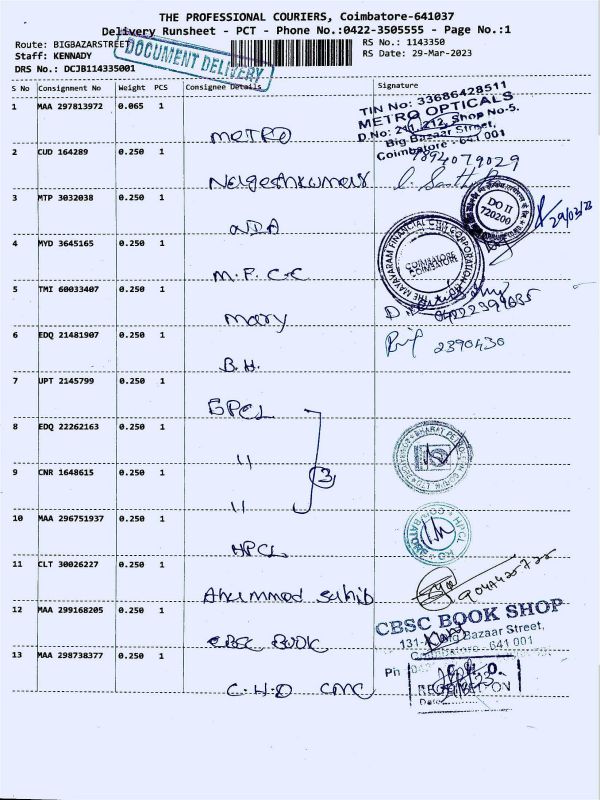 THE PROFESSIONAL COURIERS, Coimbatore-641037
Delivery Runsheet - PCT - Phone No.:0422-3505555 - Page No.:1
Route: BIGBAZARSTREET
RS No.: 1143350
Staff: KENNADY
RS Date: 29-Mar-2023
DRS No.: DCJB114335001
DOCUMENT DELIVERY
S No Consignment No Weight PCS Consignee Details Signature
1 MAA 297813972 0.065 1
METRO
TIN No: 33686428511
METRO OPTICALS
D.No: 211, 212, Shop No-5.
Big Bazaar Street,
Coimbatore - 641 001
2 CUD 164289 0.250 1
9894079029
3 MTP 3032038 0.250 1
DO II
720200
29/03/23
4 MYD 3645165 0.250 1
M.F.C.C
THE MAYAVARAM FINANCIAL CHIT CORPORATION
COIMBATORE
5 TMI 60033407 0.250 1
Mary
6 EDQ 21481907 0.250 1
B.H.
2390430
7 UPT 2145799 0.250 1
BPCL
8 EDQ 22262163 0.250 1
"
9 CNR 1648615 0.250 1
"
3
10 MAA 296751937 0.250 1
HPCL
HPCL
11 CLT 30026227 0.250 1
Ahammed Sahib
12 MAA 299168205 0.250 1
CBSC BOOK
CBSC BOOK SHOP
Big Bazaar Street,
Coimbatore - 641 001
Ph
13 MAA 298738377 0.250 1
C.H.O CMC
RECEIVED ON
Date